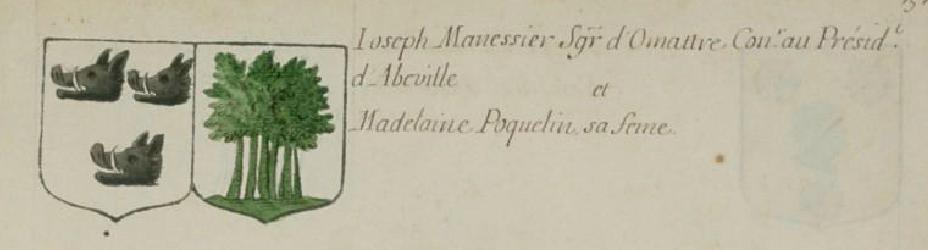 Ioseph Manessier Sgr d'Omattre Conr. au Présidt.
d'Abeville
et
Madelaine Poquelin sa feme.